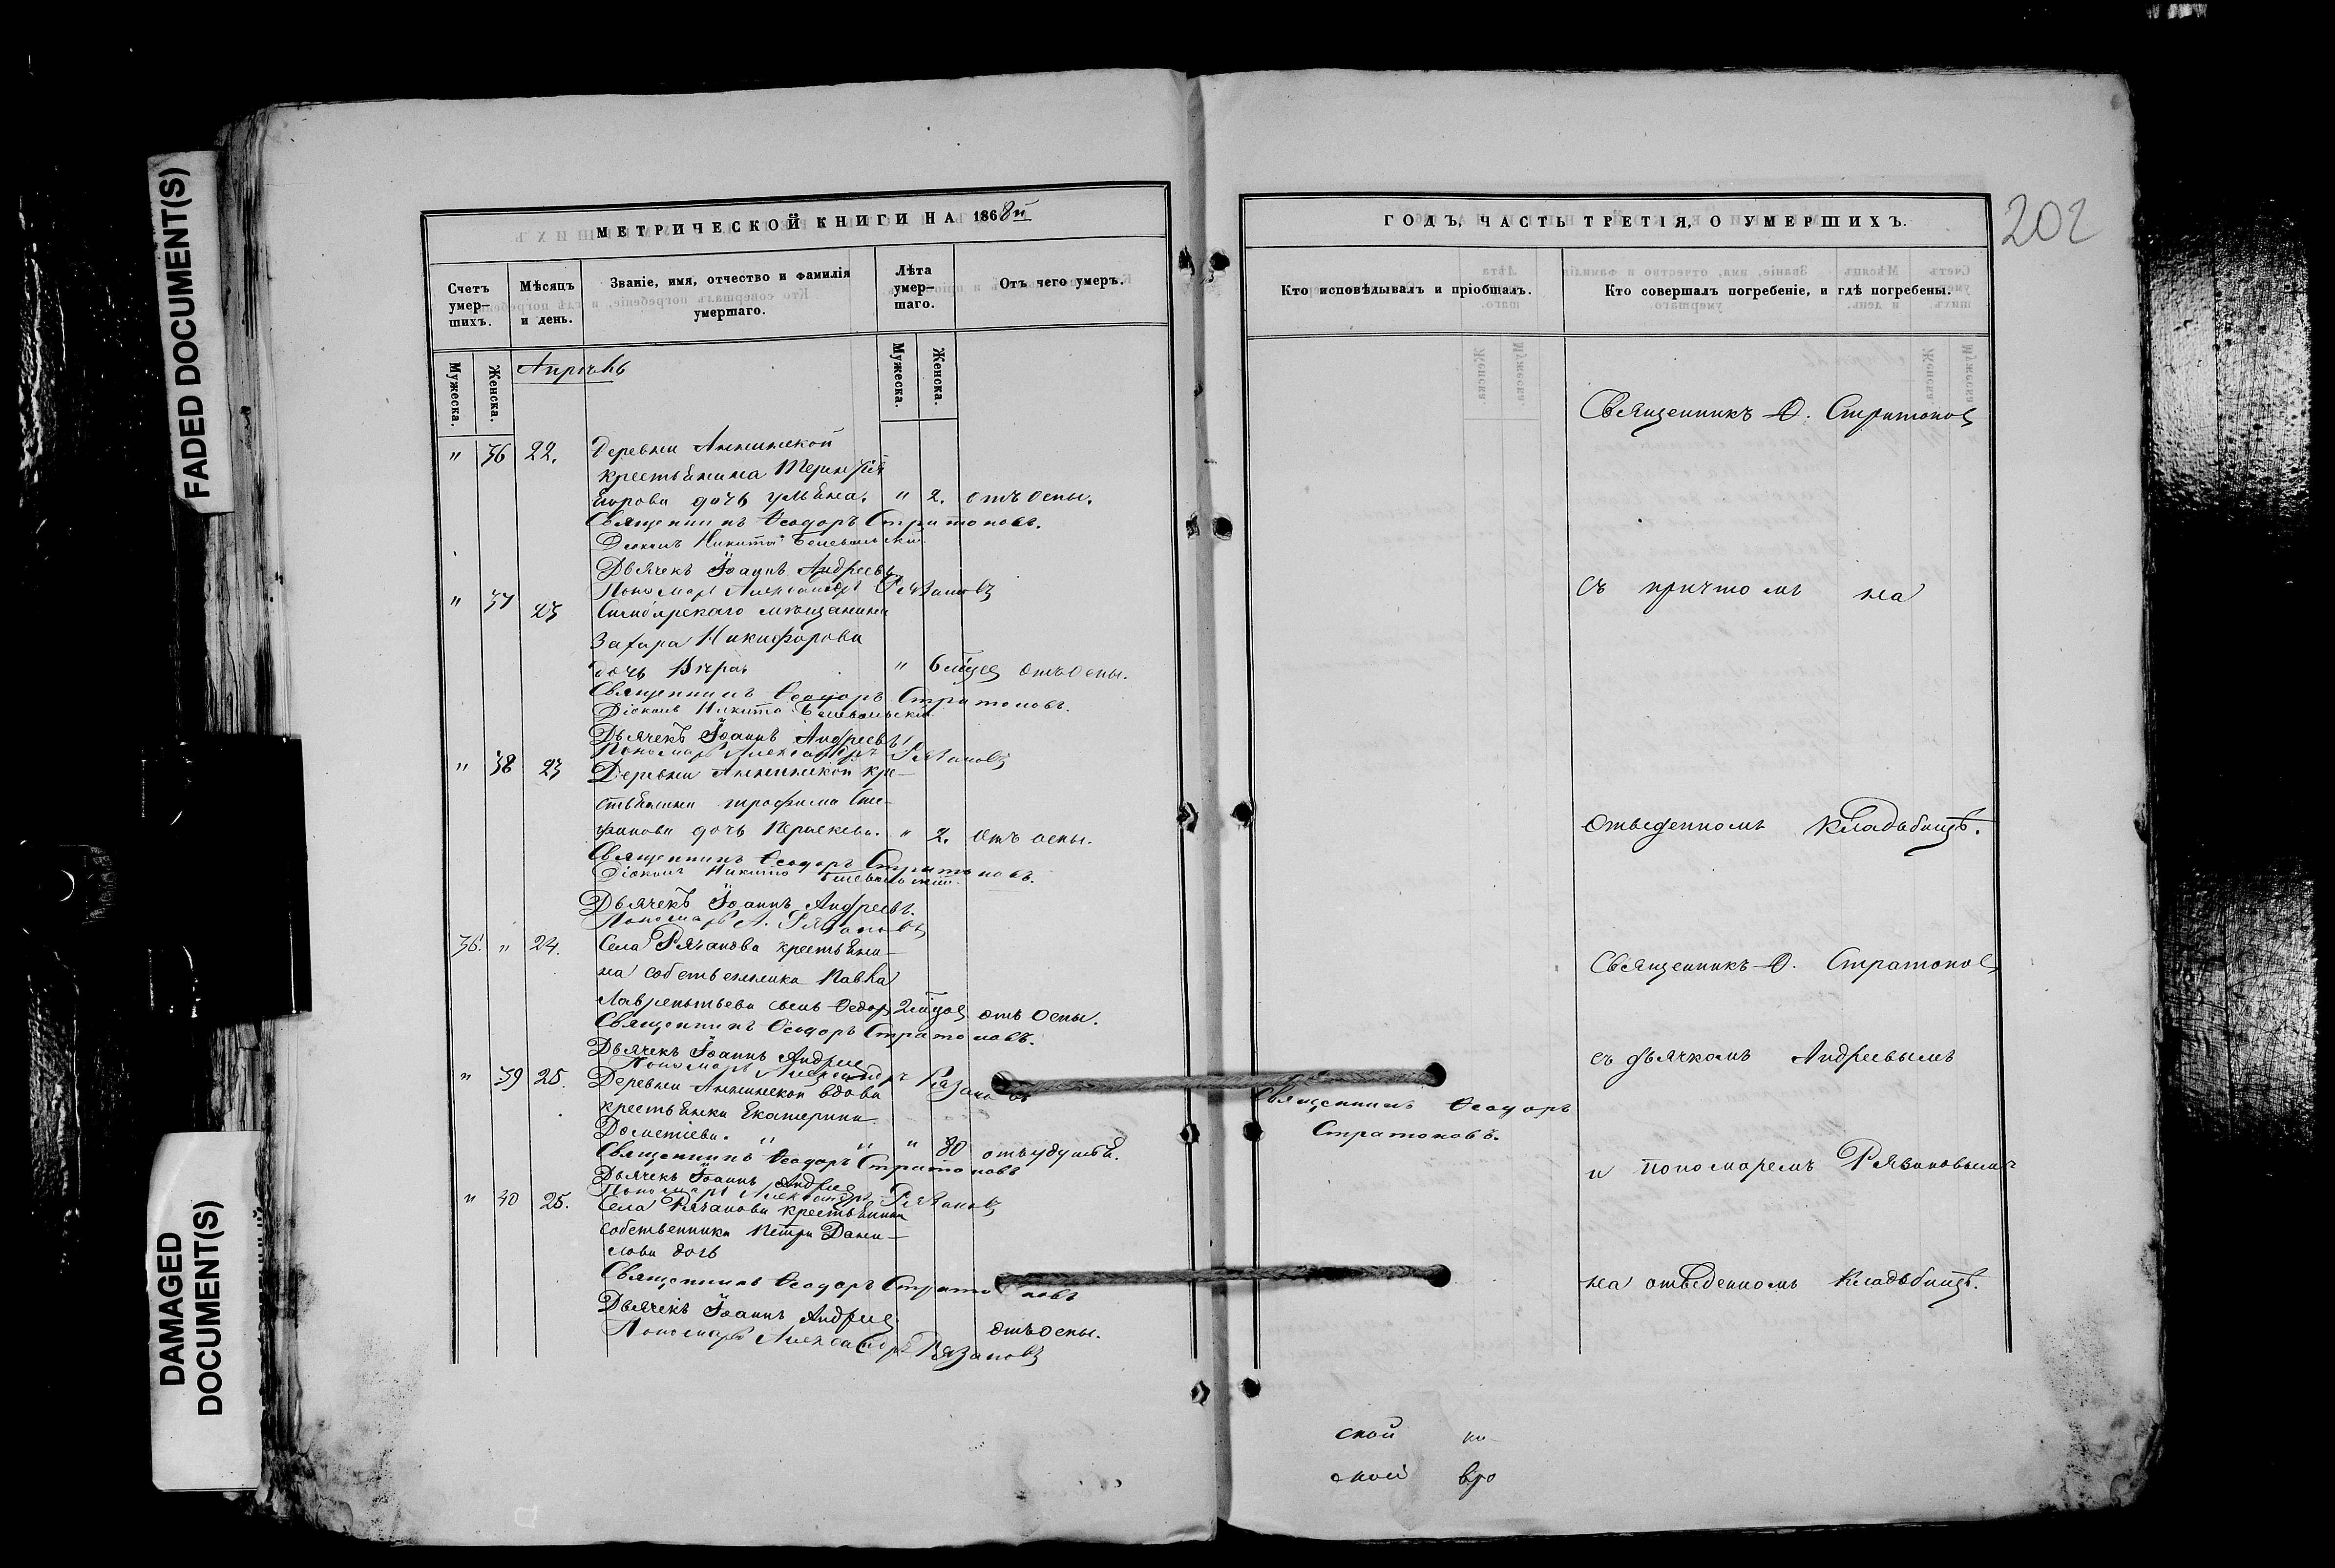 FADED DOCUMENT(S)
DAMAGED
DOCUMENT(S)
МЕТРИЧЕСКОЙ КНИГИ НА 1868й
Счетъ умер-шихъ.
Мѣсяцъ и день.
Званіе, имя, отчество и фамилія умершаго.
Лѣта умер-шаго.
Отъ чего умеръ.
Мужеска.
Женска.
Апрѣль
Мужеска.
Женска.
" 36 22. Деревни Аннинской
крестьянина Терентія
Егорова дочь Ульяна. " 2. отъ оспы.
Священникъ Ѳеодоръ Стратоновъ.
Діаконъ Никита
Дьячекъ Іоаннъ Андреевъ
Пономарь Александръ Рязановъ
" 37 23 Симбирскаго мѣщанина
Захара Никифорова
дочь Вѣра " 6 мѣсяц отъ оспы.
Священникъ Ѳеодоръ Стратоновъ.
Діаконъ Никита
Дьячекъ Іоаннъ Андреевъ
Пономарь Александръ Рязановъ
" 38 23 Деревни Аннинской кре-
стьянина Трофима Сте-
фанова дочь Параскева. " 2. отъ оспы.
Священникъ Ѳеодоръ Стратоновъ.
Діаконъ Никита
Дьячекъ Іоаннъ Андреевъ.
Пономарь А. Рязановъ
36. " 24. Села Рязанова крестьяни-
на собственника Павла
Лаврентьева сынъ Ѳедоръ 2 отъ оспы.
Священникъ Ѳеодоръ Стратоновъ.
Дьячекъ Іоаннъ Андрее
Пономарь Александръ Рязановъ
" 39 25. Деревни Аннинской вдова
крестьянка Екатерина
Дометіева. " " " 80 отъ удушья.
Священникъ Ѳеодоръ Стратоновъ
Дьячекъ Іоаннъ Андрее
Пономарь Александръ Рязановъ
" 40 25. Села Рязанова крестьянина
собственника Петра Дани-
лова дочь
Священникъ Ѳеодоръ Стратоновъ
Дьячекъ Іоаннъ Андрее
отъ оспы.
Пономарь Александръ Рязановъ
202
ГОДЪ, ЧАСТЬ ТРЕТІЯ, О УМЕРШИХЪ.
Кто исповѣдывалъ и пріобщалъ.
Кто совершалъ погребеніе, и гдѣ погребены.
Священникъ Ѳ. Стратонов
съ причтомъ на
отведенномъ кладбищѣ.
Священникъ Ѳ. Стратонов
съ дьячкомъ Андреевымъ
Священникъ Ѳеодоръ
Стратоновъ.
и пономаремъ Рязановымъ
на отведенномъ кладбищѣ.
ской
ской